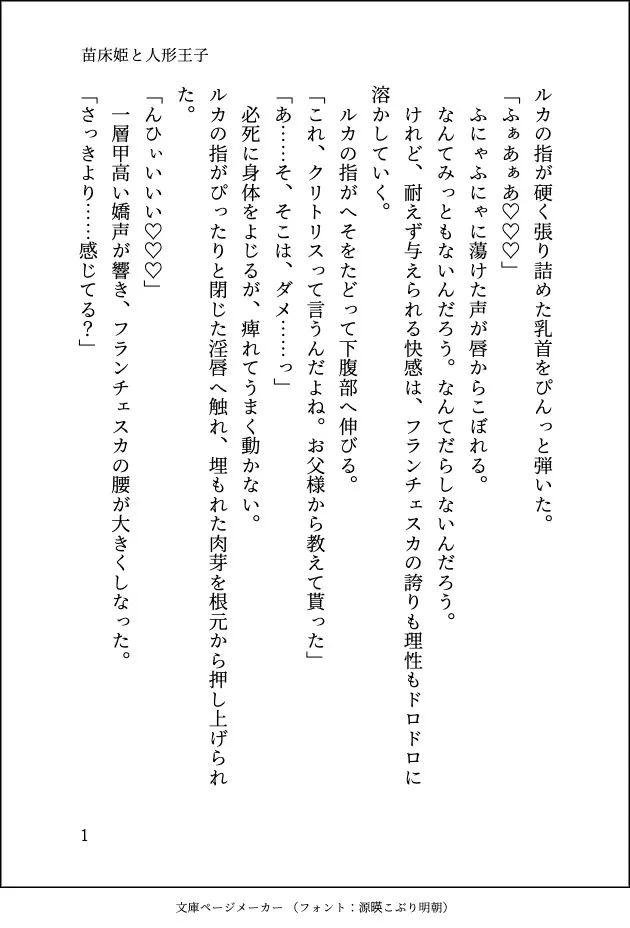 苗床姫と人形王子
ルカの指が硬く張り詰めた乳首をぴんっと弾いた。
「ふぁあぁあ♡♡♡」
ふにゃふにゃに蕩けた声が唇からこぼれる。
なんてみっともないんだろう。なんてだらしないんだろう。
けれど、耐えず与えられる快感は、フランチェスカの誇りも理性もドロドロに
溶かしていく。
ルカの指がへそをたどって下腹部へ伸びる。
「これ、クリトリスって言うんだよね。お父様から教えて貰った」
「あ……そ、そこは、ダメ……っ」
必死に身体をよじるが、痺れてうまく動かない。
ルカの指がぴったりと閉じた淫唇へ触れ、埋もれた肉芽を根元から押し上げられ
た。
「んひぃいいい♡♡♡」
一層甲高い嬌声が響き、フランチェスカの腰が大きくしなった。
「さっきより……感じてる？」
1
文庫ページメーカー（フォント：源暎こぶり明朝）